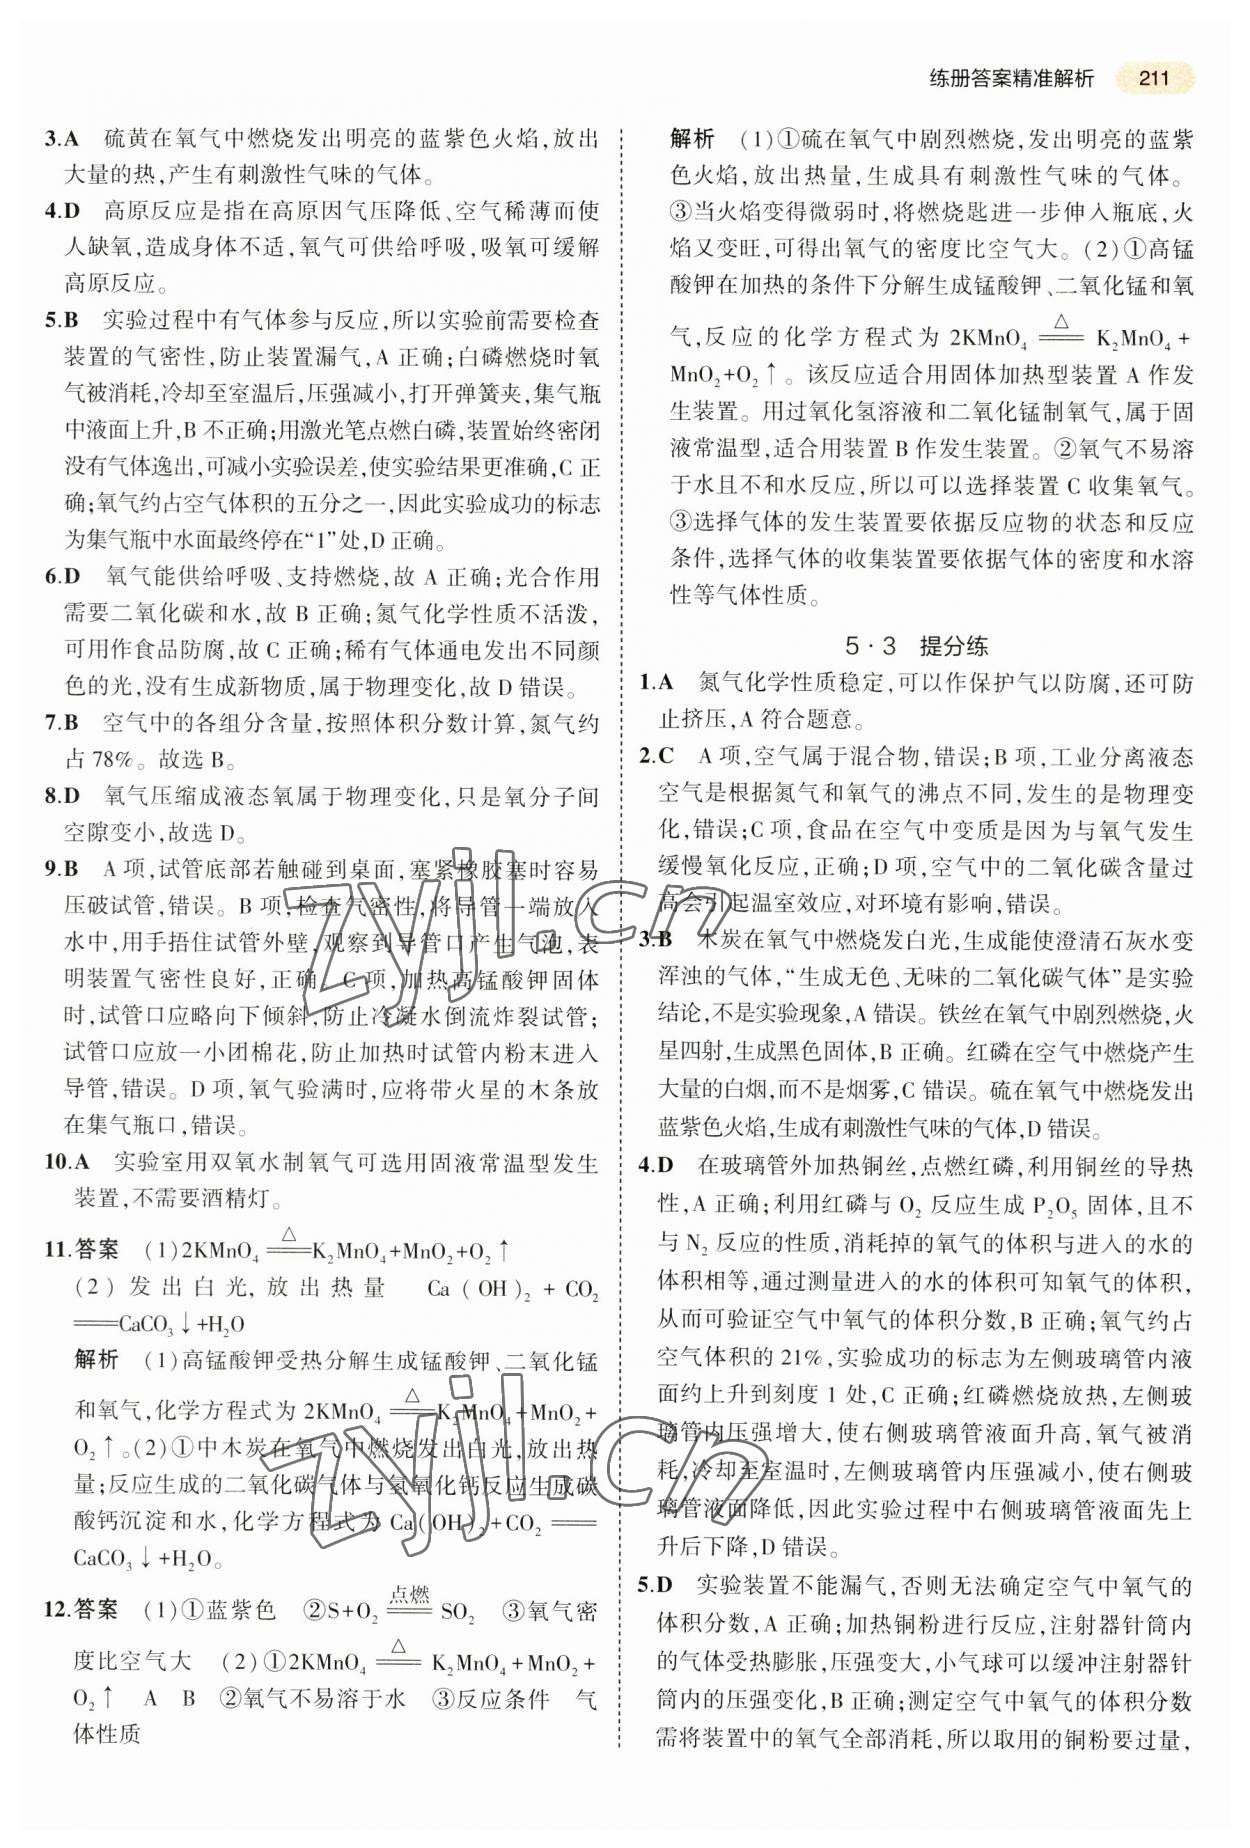 练册答案精准解析 211
3.A 硫黄在氧气中燃烧发出明亮的蓝紫色火焰,放出
大量的热,产生有刺激性气味的气体。
4.D 高原反应是指在高原因气压降低、空气稀薄而使
人缺氧,造成身体不适,氧气可供给呼吸,吸氧可缓解
高原反应。
5.B 实验过程中有气体参与反应,所以实验前需要检查
装置的气密性,防止装置漏气,A 正确;白磷燃烧时氧
气被消耗,冷却至室温后,压强减小,打开弹簧夹,集气瓶
中液面上升,B 不正确;用激光笔点燃白磷,装置始终密闭
没有气体逸出,可减小实验误差,使实验结果更准确,C 正
确;氧气约占空气体积的五分之一,因此实验成功的标志
为集气瓶中水面最终停在“1”处,D 正确。
6.D 氧气能供给呼吸、支持燃烧,故 A 正确;光合作用
需要二氧化碳和水,故 B 正确;氮气化学性质不活泼,
可用作食品防腐,故 C 正确;稀有气体通电发出不同颜
色的光,没有生成新物质,属于物理变化,故 D 错误。
7.B 空气中的各组分含量,按照体积分数计算,氮气约
占 78%。故选 B。
8.D 氧气压缩成液态氧属于物理变化,只是氧分子间
空隙变小,故选 D。
9.B A 项,试管底部若触碰到桌面,塞紧橡胶塞时容易
压破试管,错误。B 项,检查气密性,将导管一端放入
水中,用手捂住试管外壁,观察到导管口产生气泡,表
明装置气密性良好,正确。C 项,加热高锰酸钾固体
时,试管口应略向下倾斜,防止冷凝水倒流炸裂试管;
试管口应放一小团棉花,防止加热时试管内粉末进入
导管,错误。D 项,氧气验满时,应将带火星的木条放
在集气瓶口,错误。
10.A 实验室用双氧水制氧气可选用固液常温型发生
装置,不需要酒精灯。
11.答案 (1)2KMnO₄ ══△══ K₂MnO₄+MnO₂+O₂↑
(2)发出白光,放出热量 Ca(OH)₂+CO₂
══CaCO₃↓+H₂O
解析 (1)高锰酸钾受热分解生成锰酸钾、二氧化锰
和氧气,化学方程式为 2KMnO₄ ══△══ K₂MnO₄+MnO₂+
O₂↑。(2)①中木炭在氧气中燃烧发出白光,放出热
量;反应生成的二氧化碳气体与氢氧化钙反应生成碳
酸钙沉淀和水,化学方程式为 Ca(OH)₂+CO₂ ══
CaCO₃↓+H₂O。
12.答案 (1)①蓝紫色 ②S+O₂ ══点燃══ SO₂ ③氧气密
度比空气大 (2)①2KMnO₄ ══△══ K₂MnO₄+MnO₂+
O₂↑ A B ②氧气不易溶于水 ③反应条件 气
体性质
解析 (1)①硫在氧气中剧烈燃烧,发出明亮的蓝紫
色火焰,放出热量,生成具有刺激性气味的气体。
③当火焰变得微弱时,将燃烧匙进一步伸入瓶底,火
焰又变旺,可得出氧气的密度比空气大。(2)①高锰
酸钾在加热的条件下分解生成锰酸钾、二氧化锰和氧
气,反应的化学方程式为 2KMnO₄ ══△══ K₂MnO₄+
MnO₂+O₂↑。该反应适合用固体加热型装置 A 作发
生装置。用过氧化氢溶液和二氧化锰制氧气,属于固
液常温型,适合用装置 B 作发生装置。②氧气不易溶
于水且不和水反应,所以可以选择装置 C 收集氧气。
③选择气体的发生装置要依据反应物的状态和反应
条件,选择气体的收集装置要依据气体的密度和水溶
性等气体性质。
5·3 提分练
1.A 氮气化学性质稳定,可以作保护气以防腐,还可防
止挤压,A 符合题意。
2.C A 项,空气属于混合物,错误;B 项,工业分离液态
空气是根据氮气和氧气的沸点不同,发生的是物理变
化,错误;C 项,食品在空气中变质是因为与氧气发生
缓慢氧化反应,正确;D 项,空气中的二氧化碳含量过
高会引起温室效应,对环境有影响,错误。
3.B 木炭在氧气中燃烧发白光,生成能使澄清石灰水变
浑浊的气体,“生成无色、无味的二氧化碳气体”是实验
结论,不是实验现象,A 错误。铁丝在氧气中剧烈燃烧,火
星四射,生成黑色固体,B 正确。红磷在空气中燃烧产生
大量的白烟,而不是烟雾,C 错误。硫在氧气中燃烧发出
蓝紫色火焰,生成有刺激性气味的气体,D 错误。
4.D 在玻璃管外加热铜丝,点燃红磷,利用铜丝的导热
性,A 正确;利用红磷与 O₂ 反应生成 P₂O₅ 固体,且不
与 N₂ 反应的性质,消耗掉的氧气的体积与进入的水的
体积相等,通过测量进入的水的体积可知氧气的体积,
从而可验证空气中氧气的体积分数,B 正确;氧气约占
空气体积的 21%,实验成功的标志为左侧玻璃管内液
面约上升到刻度 1 处,C 正确;红磷燃烧放热,左侧玻
璃管内压强增大,使右侧玻璃管液面升高,氧气被消
耗,冷却至室温时,左侧玻璃管内压强减小,使右侧玻
璃管液面降低,因此实验过程中右侧玻璃管液面先上
升后下降,D 错误。
5.D 实验装置不能漏气,否则无法确定空气中氧气的
体积分数,A 正确;加热铜粉进行反应,注射器针筒内
的气体受热膨胀,压强变大,小气球可以缓冲注射器针
筒内的压强变化,B 正确;测定空气中氧气的体积分数
需将装置中的氧气全部消耗,所以取用的铜粉要过量,
zyjl.cn
zyjl.cn